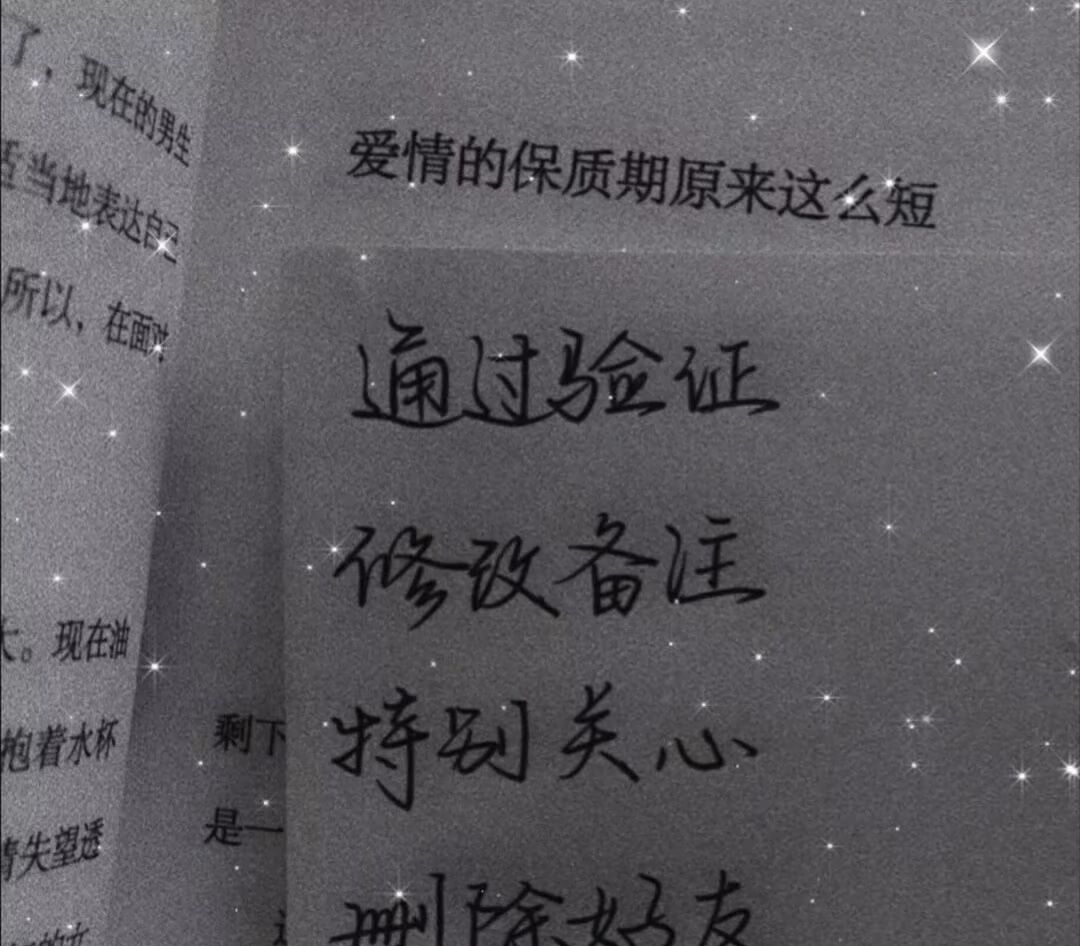 了，现在的男生
当地表达自己
所以，在面对
。现在油
抱着水杯
失望透
爱情的保质期原来这么短
通过验证
修改备注
特别关心
删除好友
剩下
是一